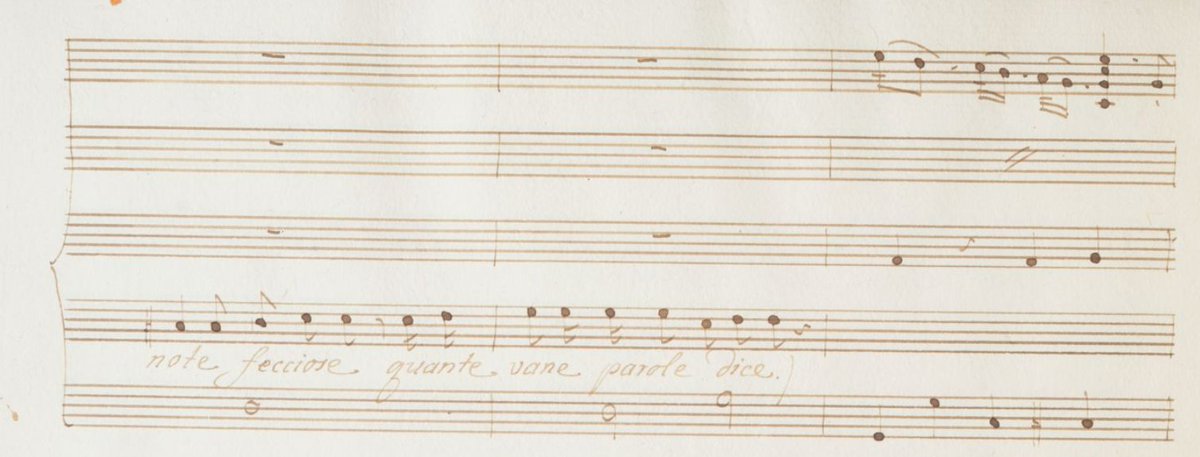 note fecciose quante vane parole dice.)